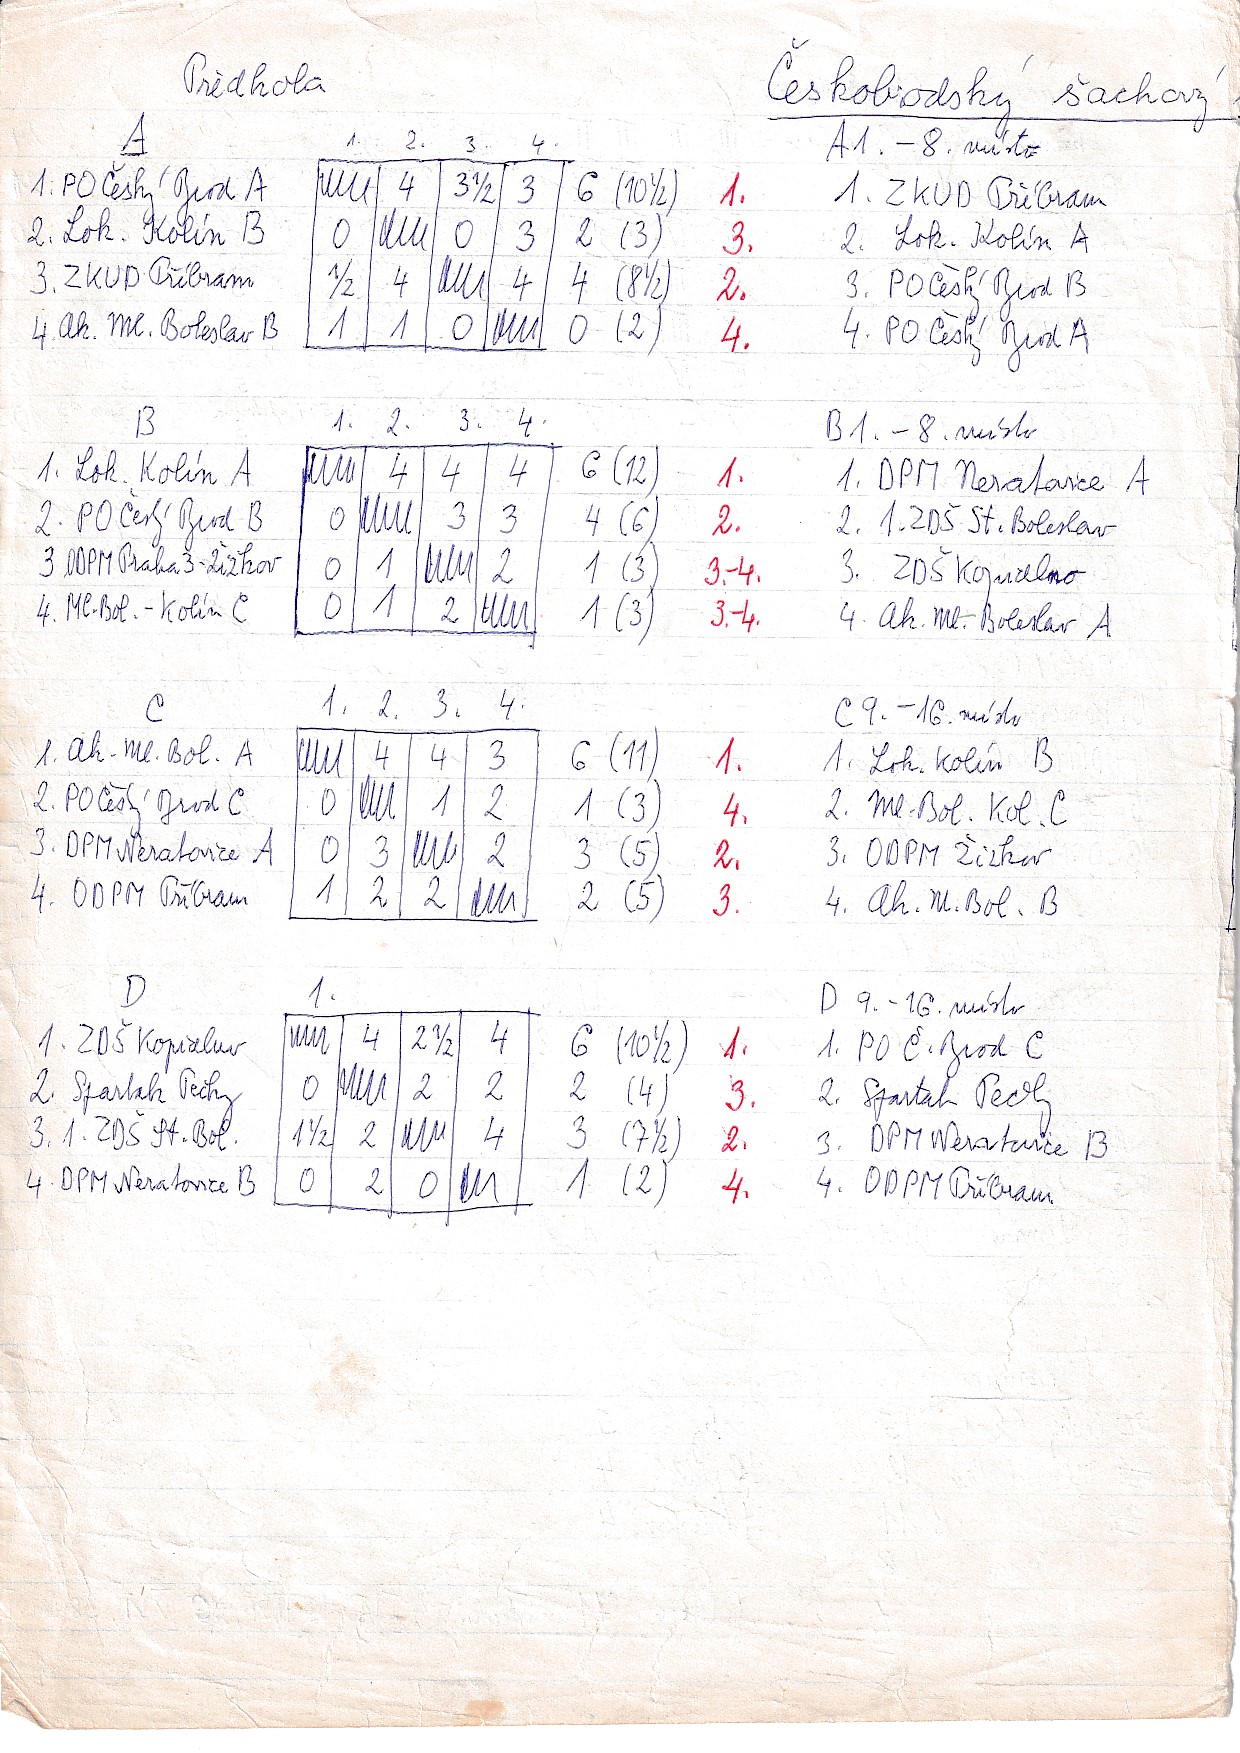 Předkola
Českobrodský šachový
A
1. 2. 3. 4.
1. PO Český Brod A 4 3½ 3 6 (10½) 1.
2. Lok. Kolín B 0 0 3 2 (3) 3.
3. ZKUD Příbram ½ 4 4 4 (8½) 2.
4. Ak. Ml. Boleslav B 1 1 0 0 (2) 4.
A 1. - 8. místo
1. ZKUD Příbram
2. Lok. Kolín A
3. PO Český Brod B
4. PO Český Brod A
B
1. 2. 3. 4.
1. Lok. Kolín A 4 4 4 6 (12) 1.
2. PO Český Brod B 0 3 3 4 (6) 2.
3 ODPM Praha 3-Žižkov 0 1 2 1 (3) 3.-4.
4. Ml. Bol. - Kolín C 0 1 2 1 (3) 3.-4.
B 1. - 8. místo
1. DPM Neratovice A
2. 1. ZDŠ St. Boleslav
3. ZDŠ Kopidlno
4. Ak. Ml. Boleslav A
C
1. 2. 3. 4.
1. Ak. Ml. Bol. A 4 4 3 6 (11) 1.
2. PO Český Brod C 0 1 2 1 (3) 4.
3. DPM Neratovice A 0 3 2 3 (5) 2.
4. ODPM Příbram 1 2 2 2 (5) 3.
C 9. - 16. místo
1. Lok. Kolín B
2. Ml. Bol. Kol. C
3. ODPM Žižkov
4. Ak. M. Bol. B
D
1.
1. ZDŠ Kopidlno 4 2½ 4 6 (10½) 1.
2. Spartak Pečky 0 2 2 2 (4) 3.
3. 1. ZDŠ St. Bol. 1½ 2 4 3 (7½) 2.
4. DPM Neratovice B 0 2 0 1 (2) 4.
D 9. - 16. místo
1. PO Č. Brod C
2. Spartak Pečky
3. DPM Neratovice B
4. ODPM Příbram